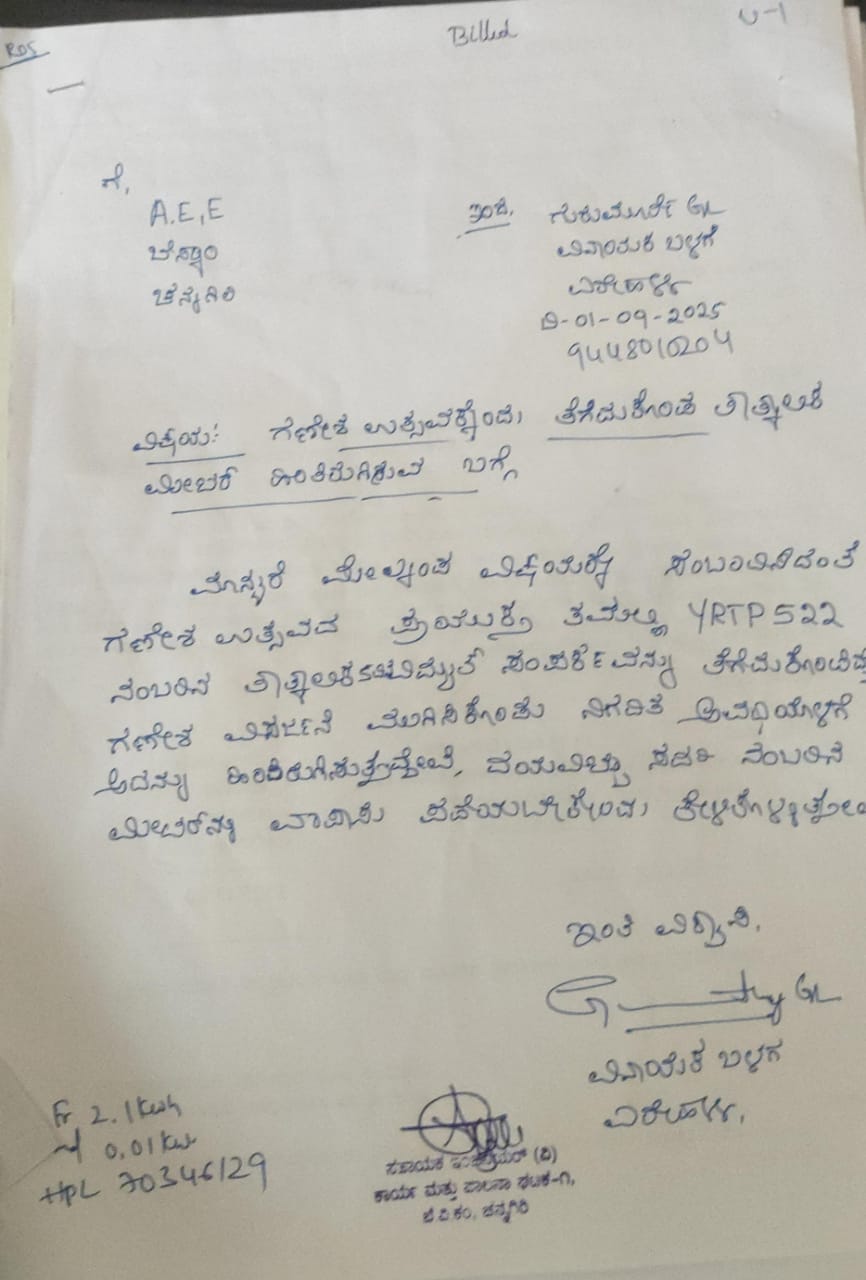 Billed
U-1
RDS
ಗೆ,
A.E,E
ಬೆಸ್ಕಾಂ
ಚನ್ನಗಿರಿ
ಇಂದ,
ಗುರುಮೂರ್ತಿ GL
ವಿನಾಯಕ ಬಳಗ
ದಿ-01-09-2025
ವಿಷಯ: ಗಣೇಶ ಉತ್ಸವಕ್ಕೆಂದು ತೆಗೆದುಕೊಂಡ ತಾತ್ಕಾಲಿಕ
ಮೀಟರ್ ಹಿಂತಿರುಗಿಸುವ ಬಗ್ಗೆ
ಮಾನ್ಯರೆ ಮೇಲ್ಕಂಡ ವಿಷಯಕ್ಕೆ ಸಂಬಂಧಿಸಿದಂತೆ
ಗಣೇಶ ಉತ್ಸವದ ಪ್ರಯುಕ್ತ ತಮ್ಮಲ್ಲಿ YRTP522
ನಂಬರಿನ ತಾತ್ಕಾಲಿಕ ವಿದ್ಯುತ್ ಸಂಪರ್ಕವನ್ನು ತೆಗೆದುಕೊಂಡಿದ್ದು
ಗಣೇಶ ವಿಸರ್ಜನೆ ಮುಗಿಸಿಕೊಂಡು ನಿಗದಿತ ಅವಧಿಯೊಳಗೆ
ಅದನ್ನು ಹಿಂದಿರುಗಿಸುತ್ತಿದ್ದೇವೆ, ದಯವಿಟ್ಟು ಸದರಿ ನಂಬರಿನ
ಮೀಟರ್‌ನ್ನು ವಾಪಾಸು ಪಡೆಯಬೇಕೆಂದು ಕೇಳಿಕೊಳ್ಳುತ್ತೇವೆ
ಇಂತಿ ವಿಶ್ವಾಸಿ,
GL
ವಿನಾಯಕ ಬಳಗ
Fr 2.1 kwh
0.01 kw
HPL 70346129
ಸಹಾಯಕ ಇಂಜಿನಿಯರ್ (ವಿ)
ಕಾರ್ಯ ಮತ್ತು ಪಾಲನಾ ಘಟಕ-೧,
ಬೆ.ವಿ.ಕಂ, ಚನ್ನಗಿರಿ